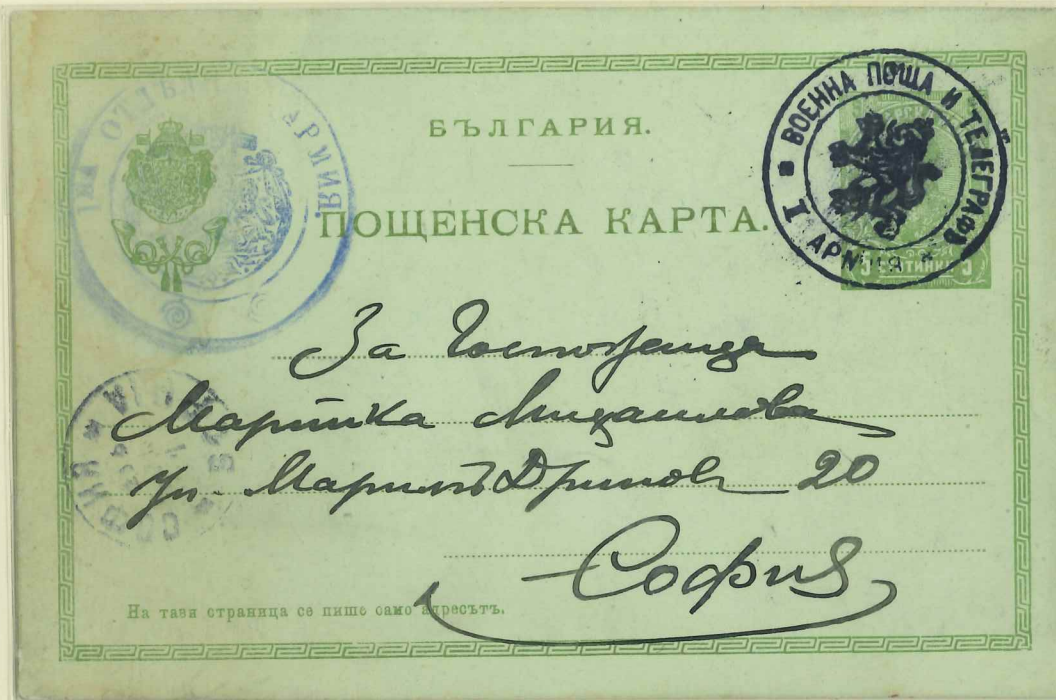 БЪЛГАРИЯ.
ПОЩЕНСКА КАРТА.
ВОЕННА ПОЩА И ТЕЛЕГРАФЪ
I АРМИЯ
5 СТОТИНКИ 5
АРМИЯ
За Госпожица
Марийка Михаилова
Ул. Маринъ Дриновъ 20
София
СОФИЯ
На тази страница се пише само адресътъ.